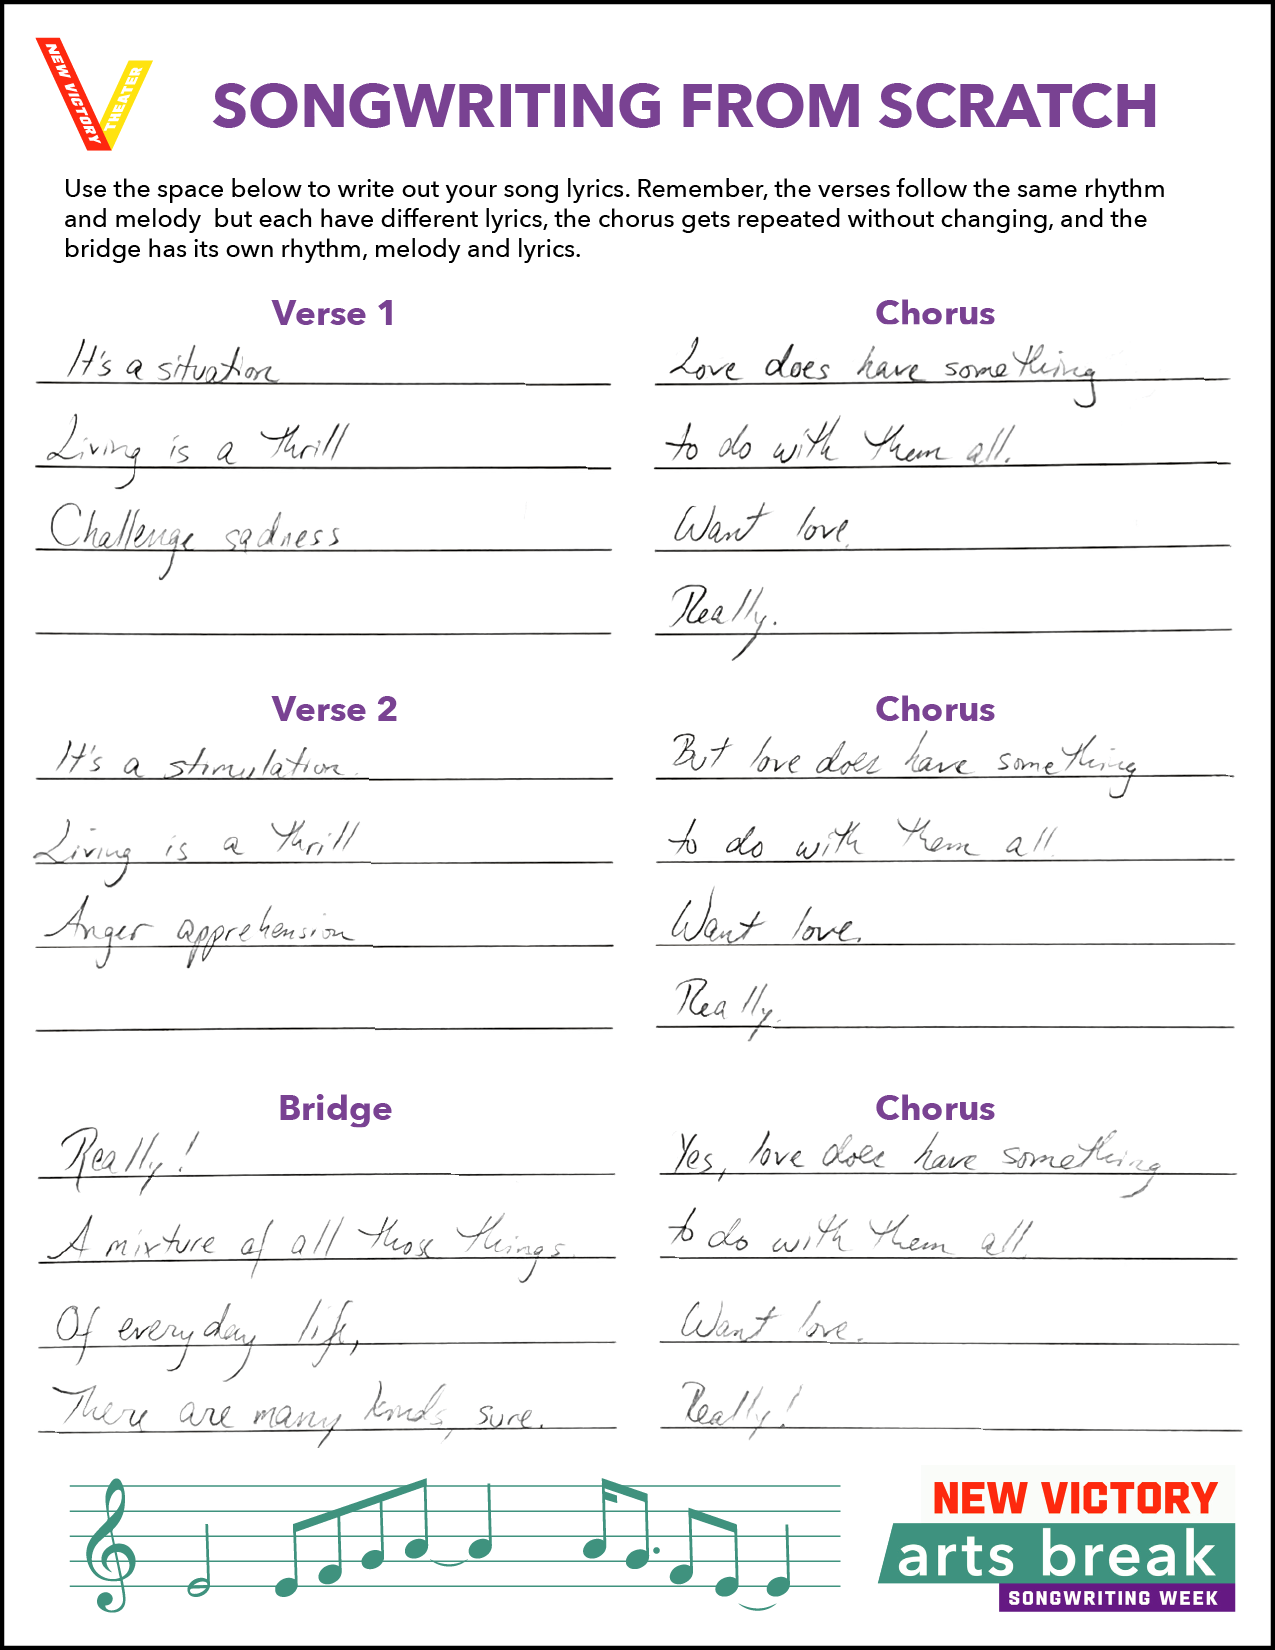 NEW VICTORY
THEATER
SONGWRITING FROM SCRATCH
Use the space below to write out your song lyrics. Remember, the verses follow the same rhythm
and melody but each have different lyrics, the chorus gets repeated without changing, and the
bridge has its own rhythm, melody and lyrics.
Verse 1
It's a situation
Living is a thrill
Challenge sadness
Chorus
Love does have something
to do with them all.
Want love.
Really.
Verse 2
It's a stimulation.
Living is a thrill
Anger apprehension
Chorus
But love does have something
to do with them all.
Want love.
Really.
Bridge
Really!
A mixture of all those things.
Of everyday life,
There are many kinds, sure.
Chorus
Yes, love does have something
to do with them all.
Want love.
Really!
NEW VICTORY
arts break
SONGWRITING WEEK